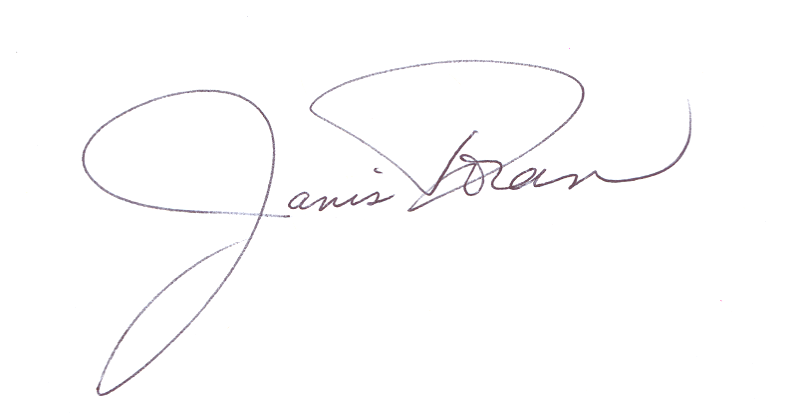 Janis Doran